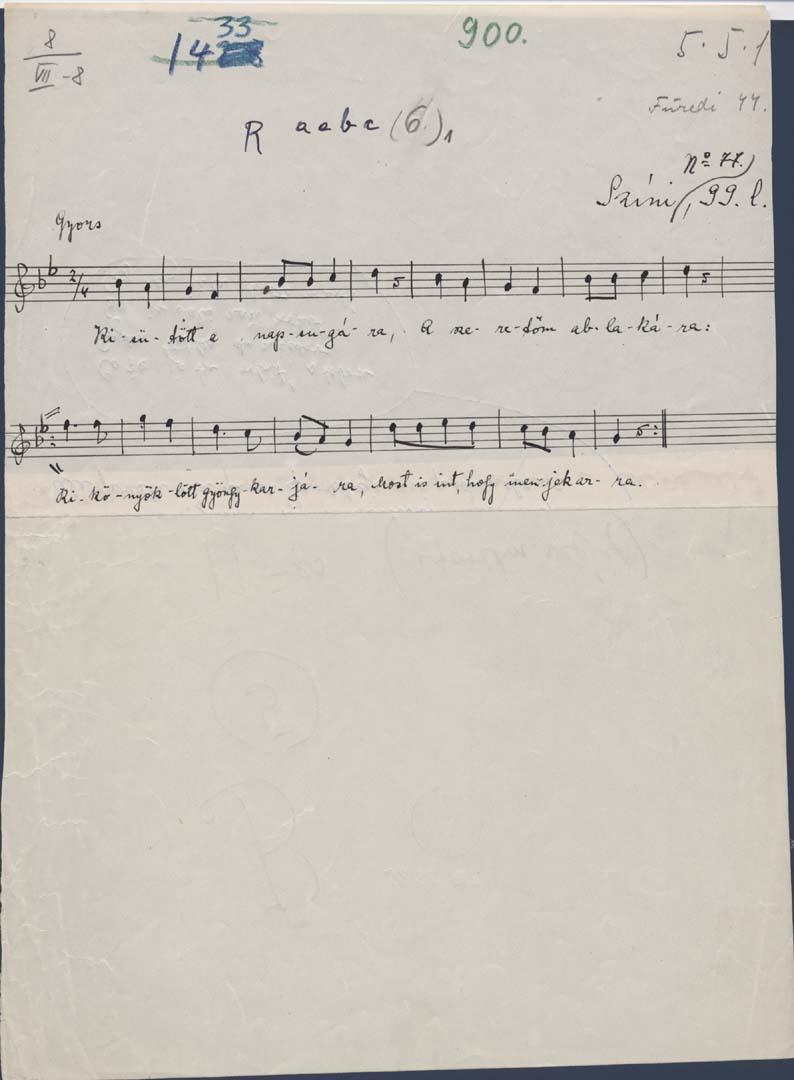 8
VII-8
33
14
900.
5.5.1
Füredi 44.
R aabc (6)1
No 77.)
Színi, 99. l.
Gyors
2/4
Ki-sü-tött a nap-su-gá-ra, A sze-re-tőm ab-la-ká-ra:
Ki-kö-nyök-lött gyöngy-kar-já-ra, Most is int, hogy men-jek ar-ra.